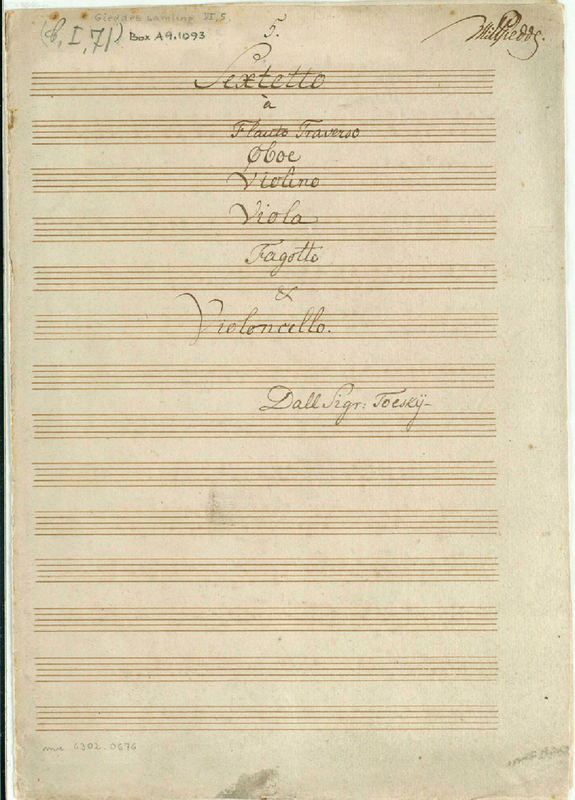 Gieddes samling VI,5.
5.
(6, I, 71) Box A9.1093
WHRGiedde.
Sextetto
à
Flauto Traverso
Oboe
Violino
Viola
Fagotto
&
Violoncello.
Dall Sigr: Toeskÿ
mu 6302.0676